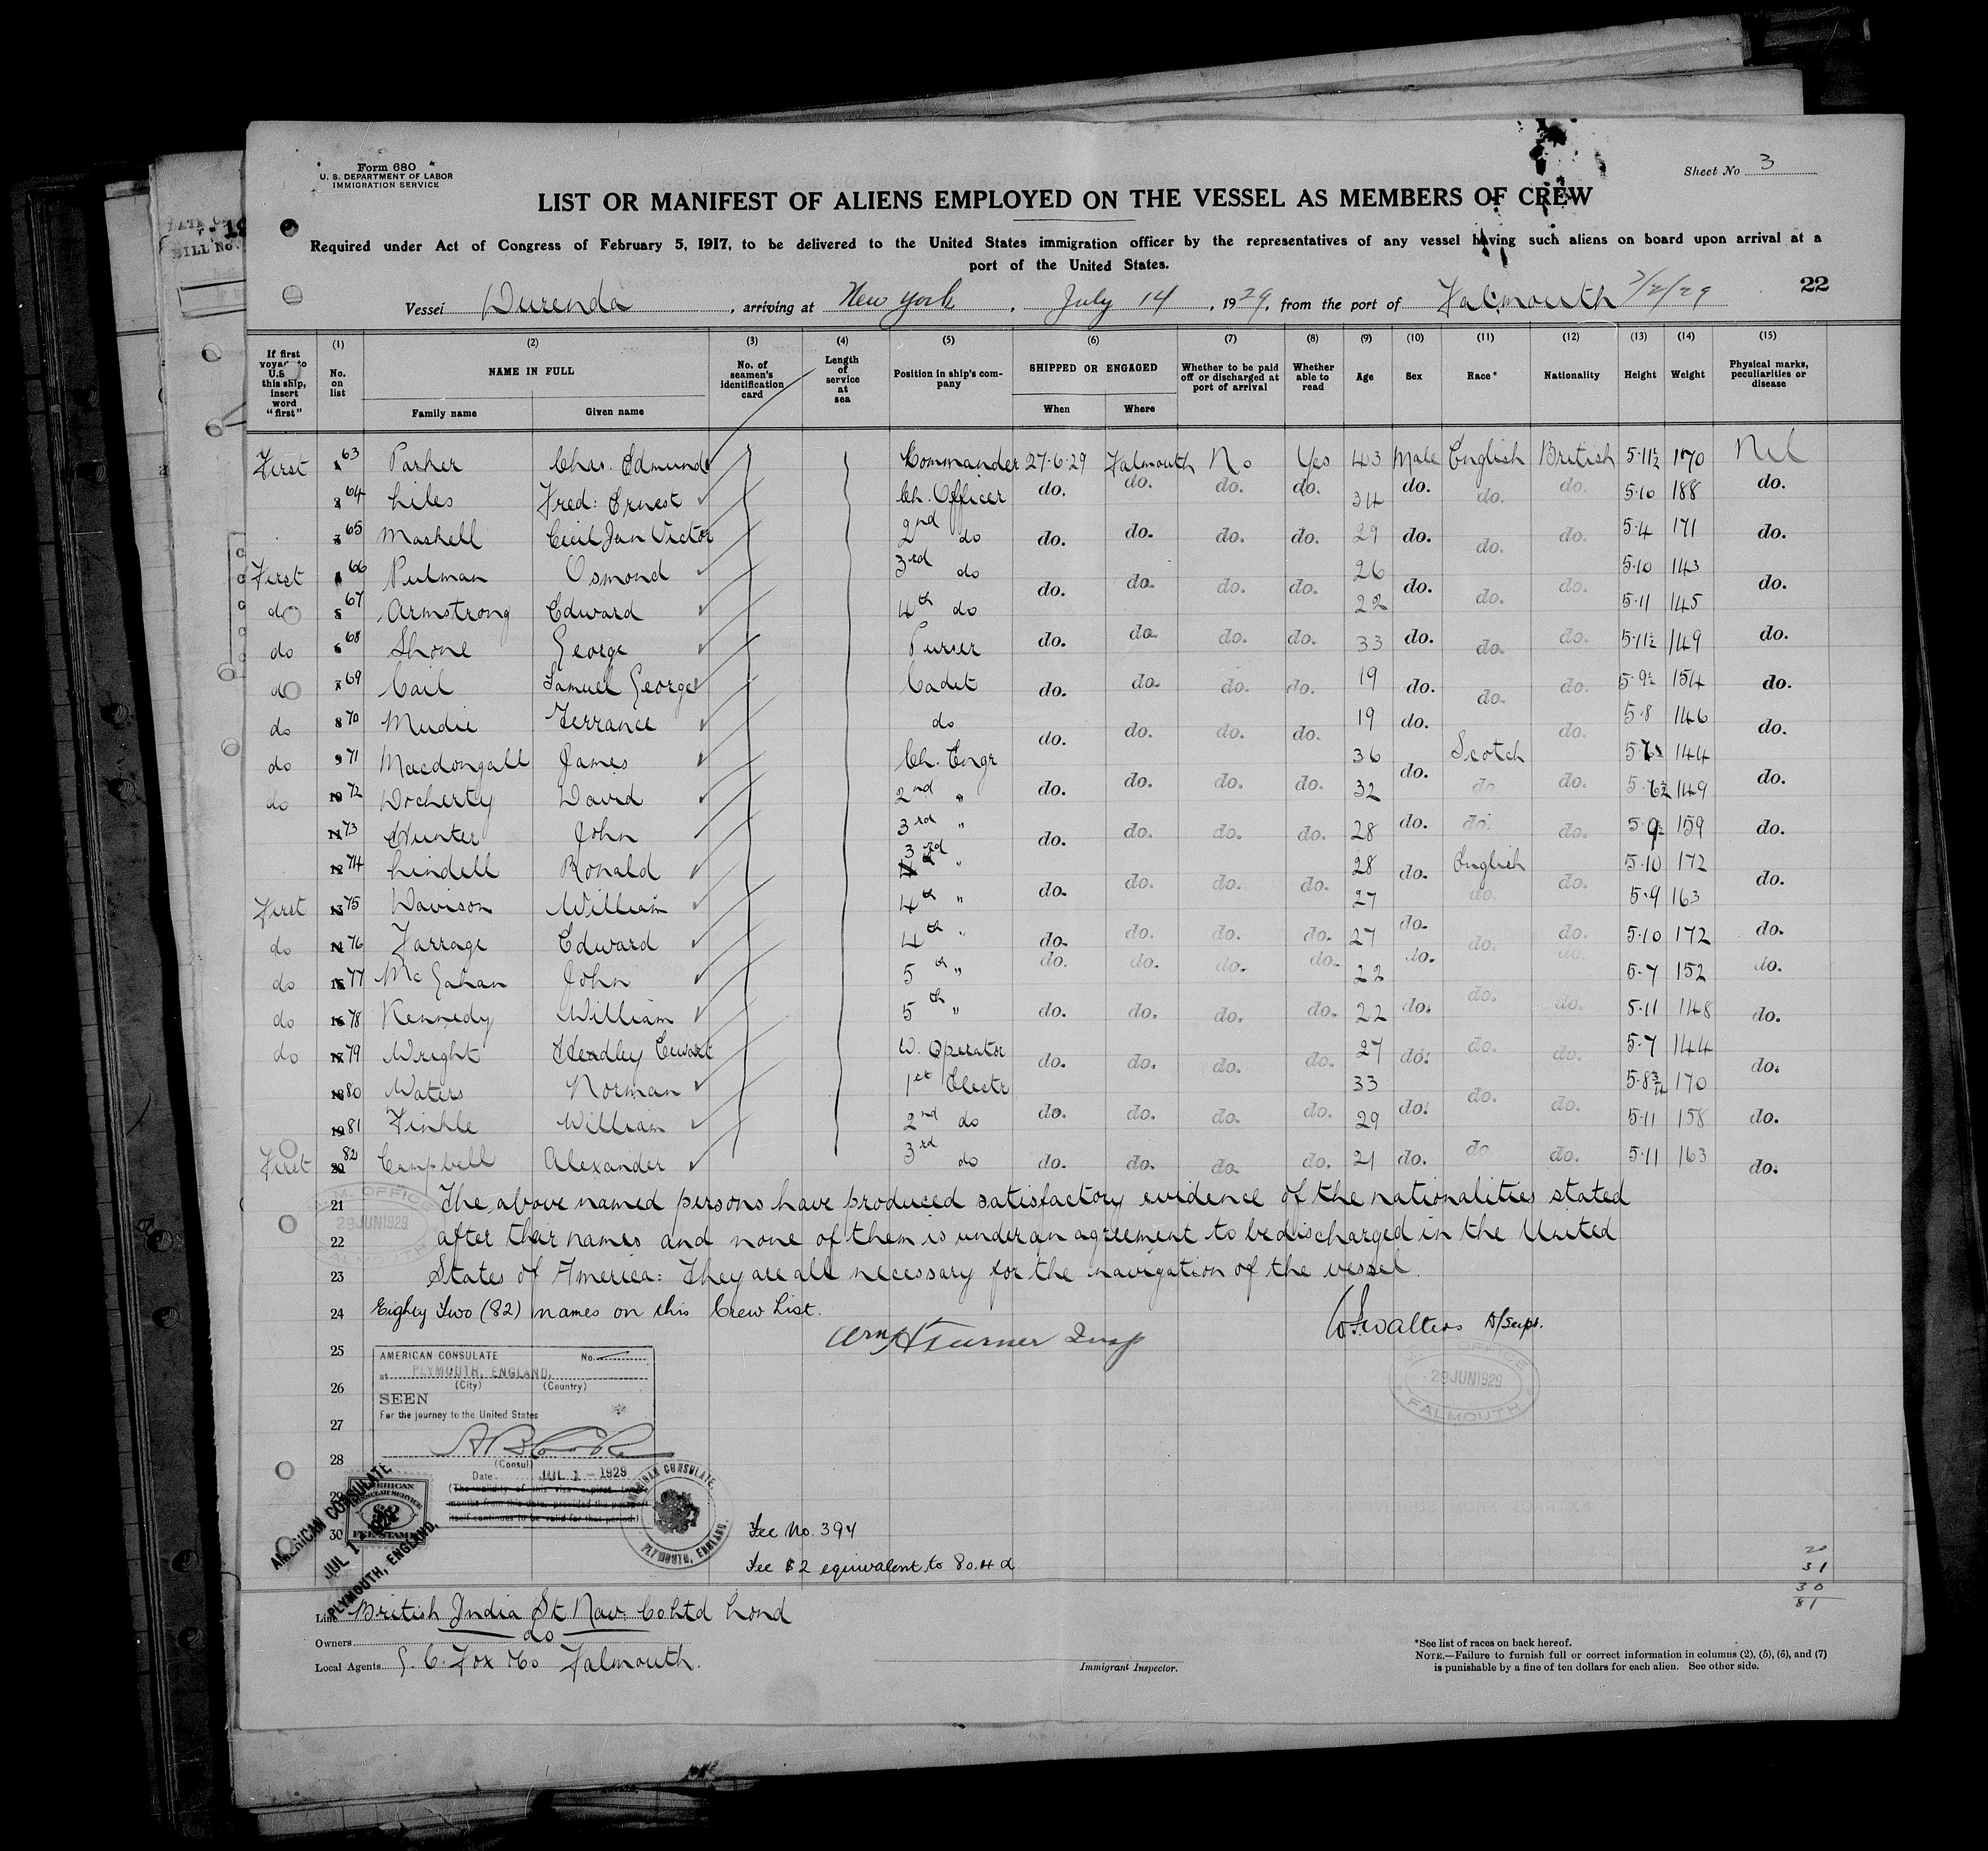 Form 680
U. S. DEPARTMENT OF LABOR
IMMIGRATION SERVICE
Sheet No 3
LIST OR MANIFEST OF ALIENS EMPLOYED ON THE VESSEL AS MEMBERS OF CREW
Required under Act of Congress of February 5, 1917, to be delivered to the United States immigration officer by the representatives of any vessel having such aliens on board upon arrival at a
port of the United States.
22
Vessel Durenda, arriving at New York, July 14, 1929, from the port of Falmouth 7/2/29
(1) (2) (3) (4) (5) (6) (7) (8) (9) (10) (11) (12) (13) (14) (15)
If first voyage to U.S. this ship, insert word "first" No. on list NAME IN FULL Family name Given name No. of seamen's identification card Length of service at sea Position in ship's company SHIPPED OR ENGAGED When Where Whether to be paid off or discharged at port of arrival Whether able to read Age Sex Race* Nationality Height Weight Physical marks, peculiarities or disease
First 63 Parker Chas. Edmund Commander 27-6-29 Falmouth No Yes 43 Male English British 5-11½ 170 Nil
64 Liles Fred: Ernest Ch. Officer do. do. do. do. 34 do. do. do. 5-10 188 do.
65 Maskell Cecil Jan Victor 2nd do do. do. do. do. 29 do. do. do. 5-4 171 do.
First 66 Pulman Osmond 3rd do do. do. do. do. 26 do. do. do. 5-10 143 do.
do 67 Armstrong Edward 4th do 22 5-11 145
do 68 Shone George Purser do. do. do. do. 33 do. do. do. 5-11½ 149 do.
do 69 Cail Samuel George Cadet do. do. do. do. 19 do. do. do. 5-9½ 154 do.
do 70 Mudie Terrance do do. do. do. do. 19 do. do. 5-8 146 do.
do 71 Macdongall James Ch. Engr 36 Scotch 144
do 72 Docherty David 2nd " do. do. do. do. 32 do. do. do. 5-6½ 149 do.
73 Hunter John 3rd " do. do. do. do. 28 do. do. do. 5-9½ 159 do.
74 Lindell Ronald 3rd " 28 do. English 5-10 172
First 75 Davison William 4th " do. do. do. do. 27 do. do. 5-9 163 do.
do 76 Farrage Edward 4th " do. do. do. do. 27 do. do. do. 5-10 172 do.
do 77 McGahan John 5th " do. do. do. do. 22 do. do. 5-7 152 do.
do 78 Kennedy William 5th " do. do. do. do. 22 do. do. do. 5-11 148 do.
do 79 Wright Headley Ewart W. Operator do. do. do. do. 27 do. do. do. 5-7 144 do.
80 Waters Norman 1st Electr 33 do. 5-8¾ 170
81 Finkle William 2nd do do. do. do. do. 29 do. do. 5-11 158 do.
First 82 Campbell Alexander 3rd do do. do. do. do. 21 do. do do. 5-11 163 do.
21 The above named persons have produced satisfactory evidence of the nationalities stated
22 after their names and none of them is under an agreement to be discharged in the United
23 States of America: They are all necessary for the navigation of the vessel.
24 Eighty Two (82) names on this Crew List.
Wm H Turner Insp
Walters A/Supt.
29 JUN 1929
25
26
27
28
30
AMERICAN CONSULATE No.
at PLYMOUTH, ENGLAND,
(City) (Country)
SEEN
For the journey to the United States
(Consul)
Date JUL 1 - 1929
AMERICAN CONSULATE
PLYMOUTH, ENGLAND.
AMERICAN CONSULATE
JUL 1 1929
PLYMOUTH, ENGLAND.
29 JUN 1929
FALMOUTH
Fee No. 394
Fee $2 equivalent to 8s.4d
20
31
30
81
Line British India St Nav. Co Ltd Lond
Owners do
Local Agents G. C. Fox & Co Falmouth.
Immigrant Inspector.
*See list of races on back hereof.
NOTE.—Failure to furnish full or correct information in columns (2), (5), (6), and (7)
is punishable by a fine of ten dollars for each alien. See other side.